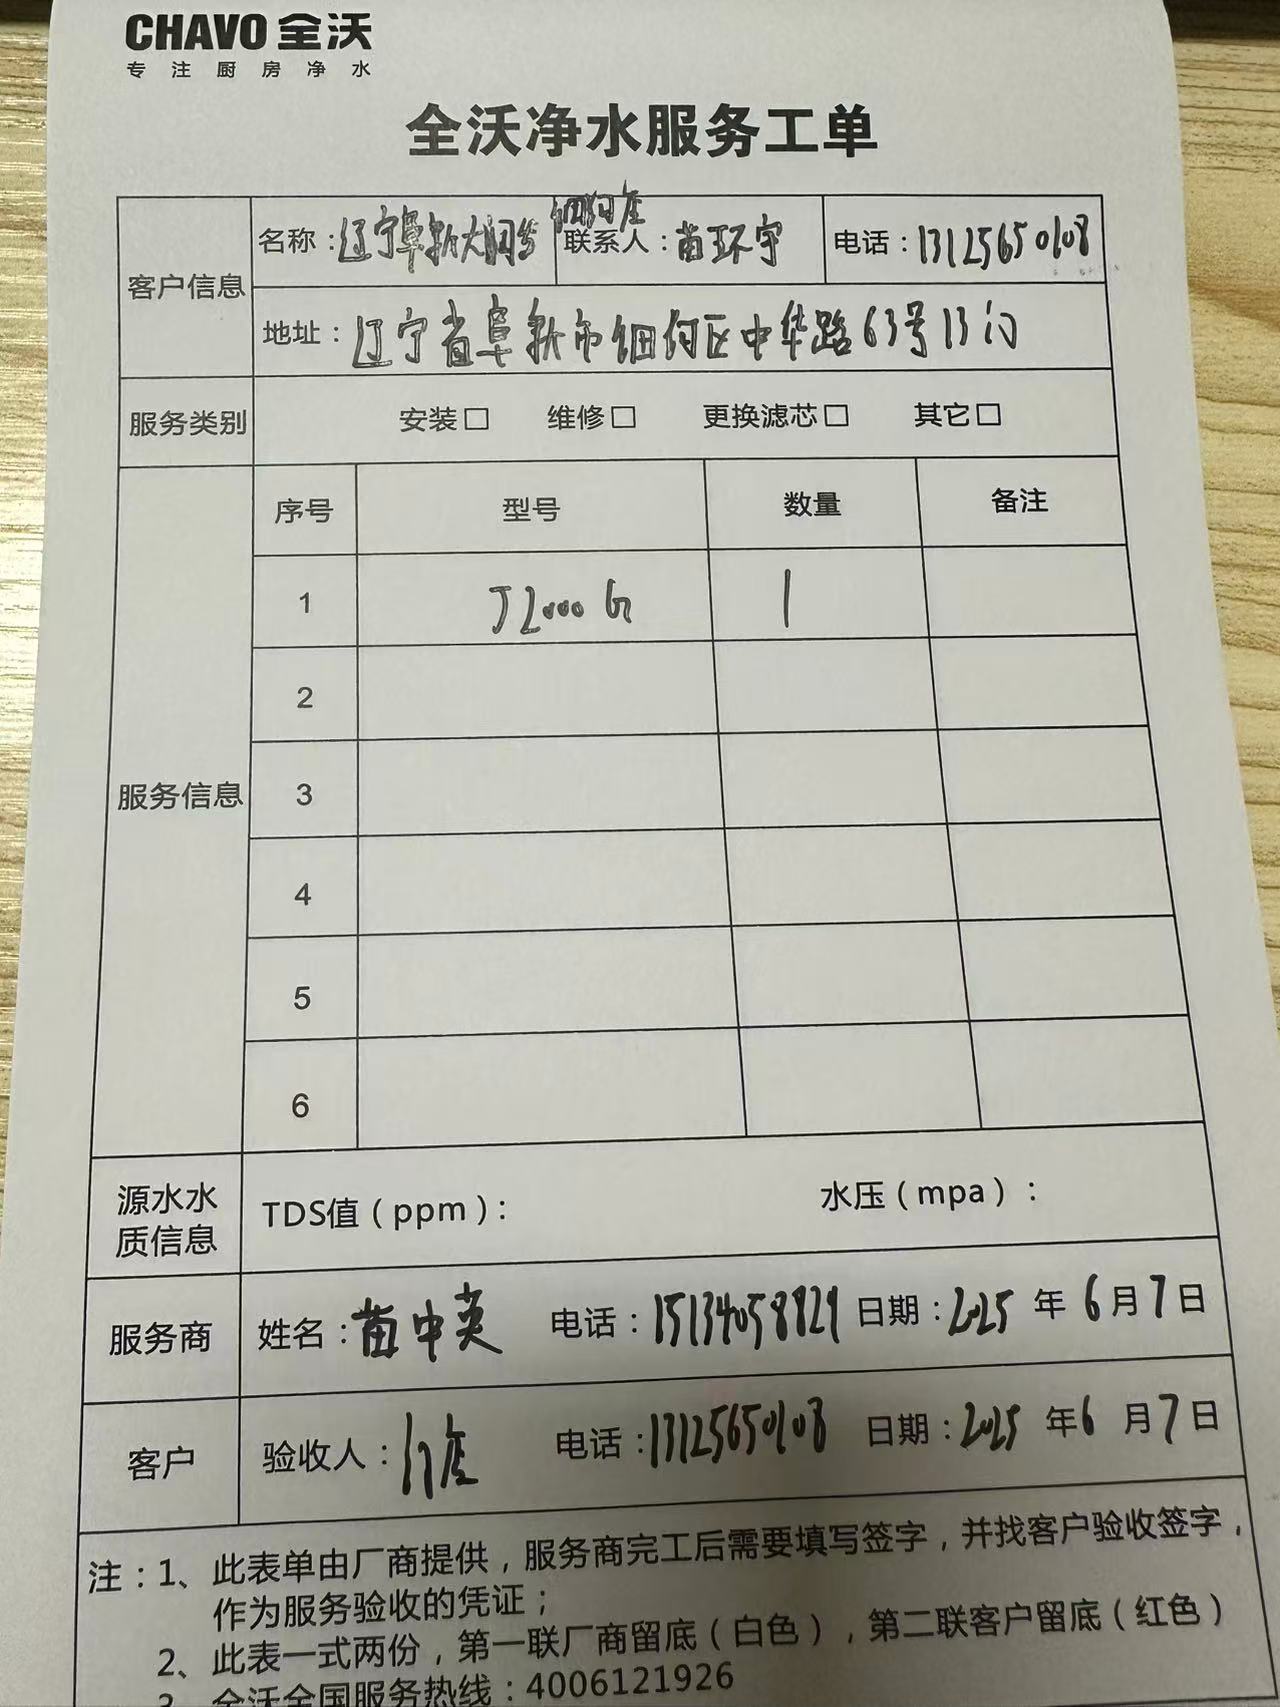 CHAVO 全沃
专注厨房净水
全沃净水服务工单
客户信息
名称：辽宁阜新大润发细河店
联系人：苗环宇
电话：13125650108
地址：辽宁省阜新市细河区中华路63号13门
服务类别
安装□ 维修□ 更换滤芯□ 其它□
服务信息
序号 型号 数量 备注
1 J2000G 1
2
3
4
5
6
源水水质信息
TDS值（ppm）： 水压（mpa）：
服务商
姓名：苗中英 电话：15134058829 日期：2025 年 6 月 7 日
客户
验收人： 电话：13125650108 日期：2025 年 6 月 7 日
注：1、此表单由厂商提供，服务商完工后需要填写签字，并找客户验收签字，
作为服务验收的凭证；
2、此表一式两份，第一联厂商留底（白色），第二联客户留底（红色）
3、全沃全国服务热线：4006121926